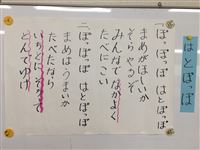 はとぽっぽ
一 ぽっぽっぽ はとぽっぽ
まめがほしいか
そらやるぞ
みんなでなかよく
たべにこい
二 ぽっぽっぽ はとぽっぽ
まめはうまいか
たべたなら
いちどにそろって
とんでゆけ